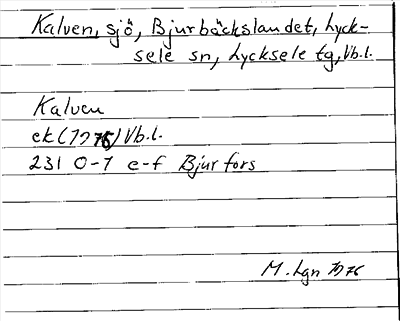 Kalven, sjö, Bjurbäckslandet, Lyck-
sele sn, Lycksele tg, Vb.l.
Kalven
ek (1976) Vb.l.
231 0-1 e-f Bjurfors
M. Lgn 1976